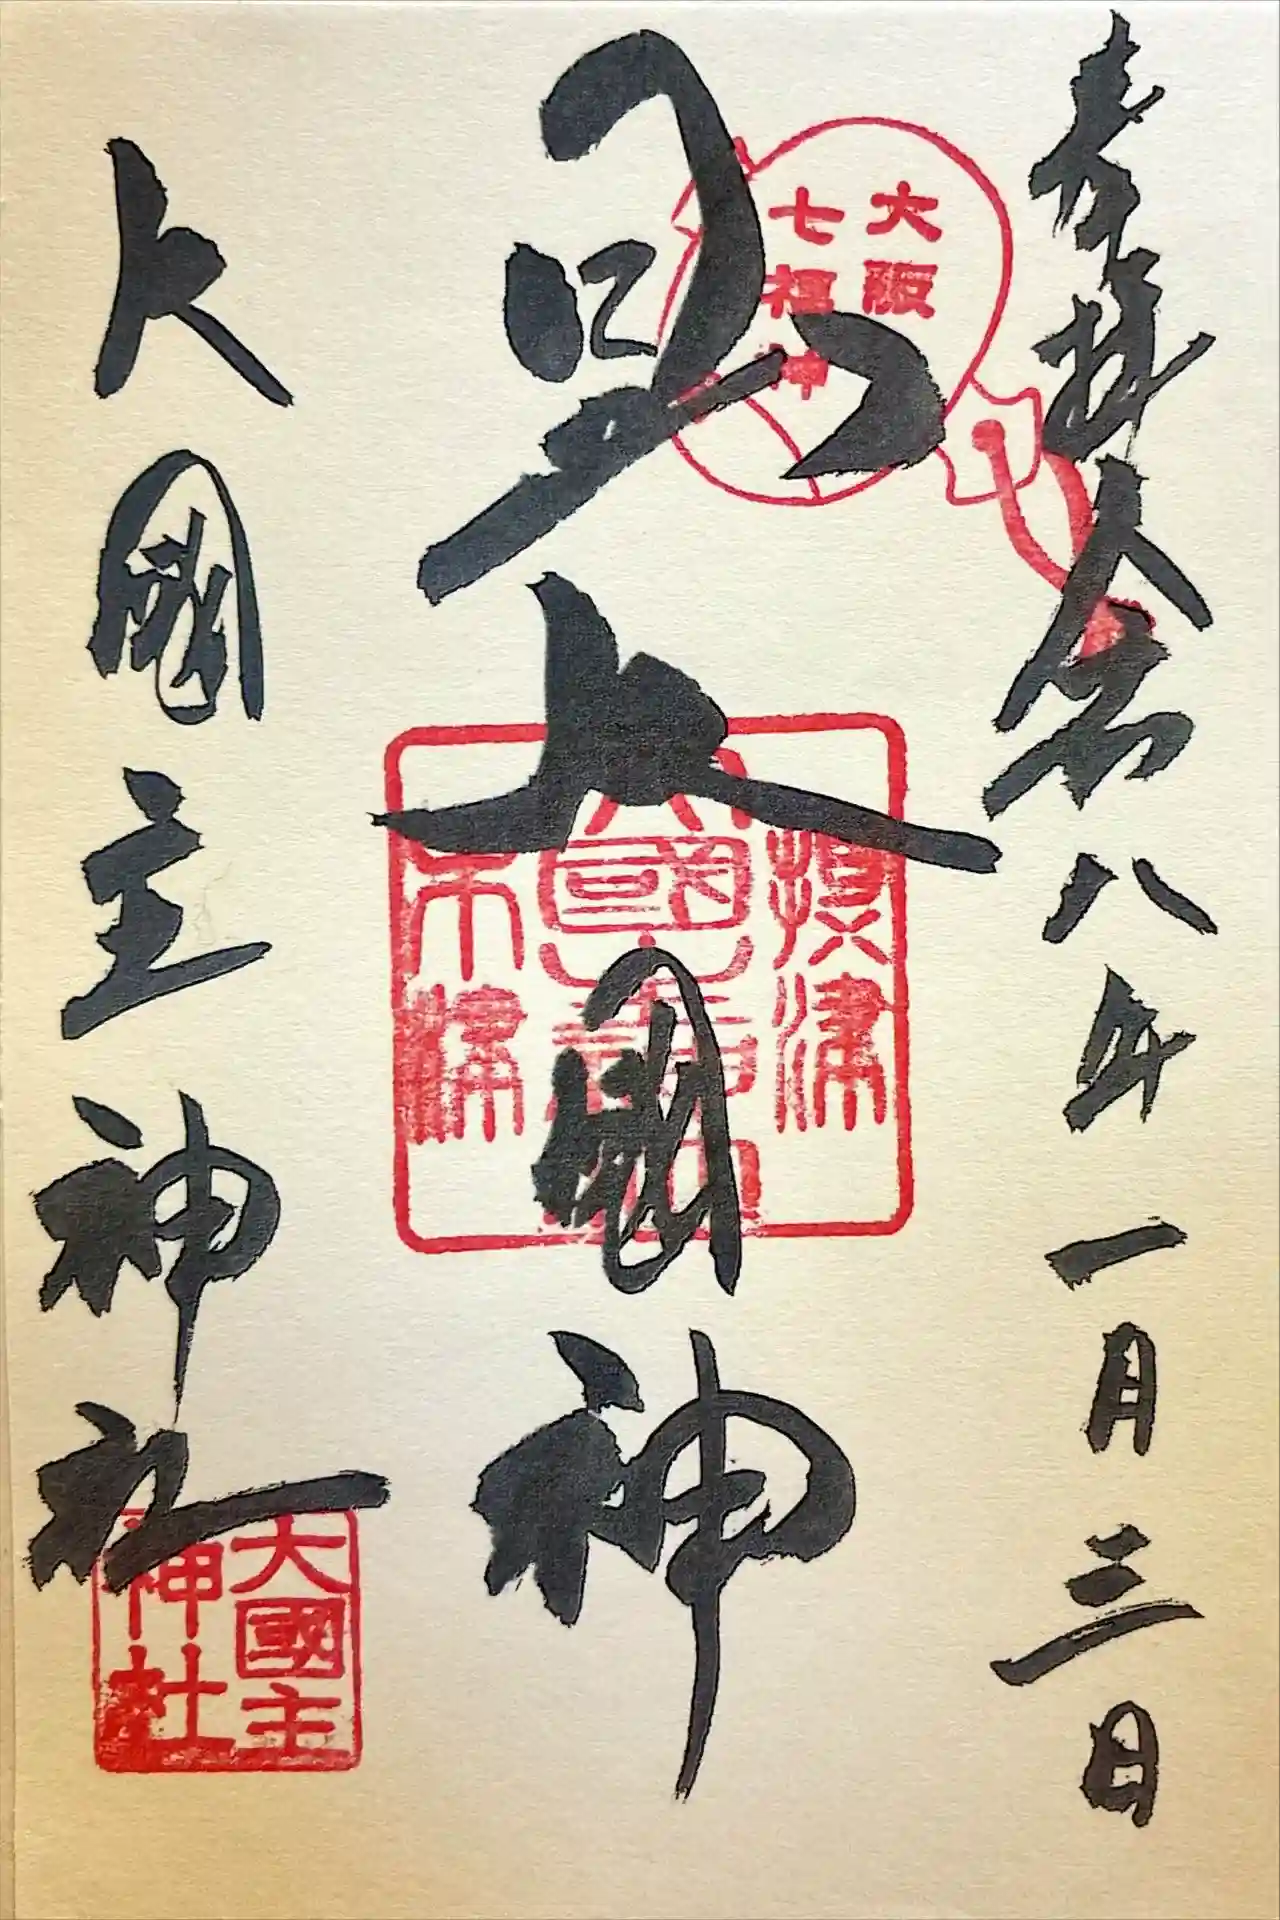 奉拝 令和八年一月三日
大阪
七福神
日出大國神
摂津
大國主神社
大國主
神社